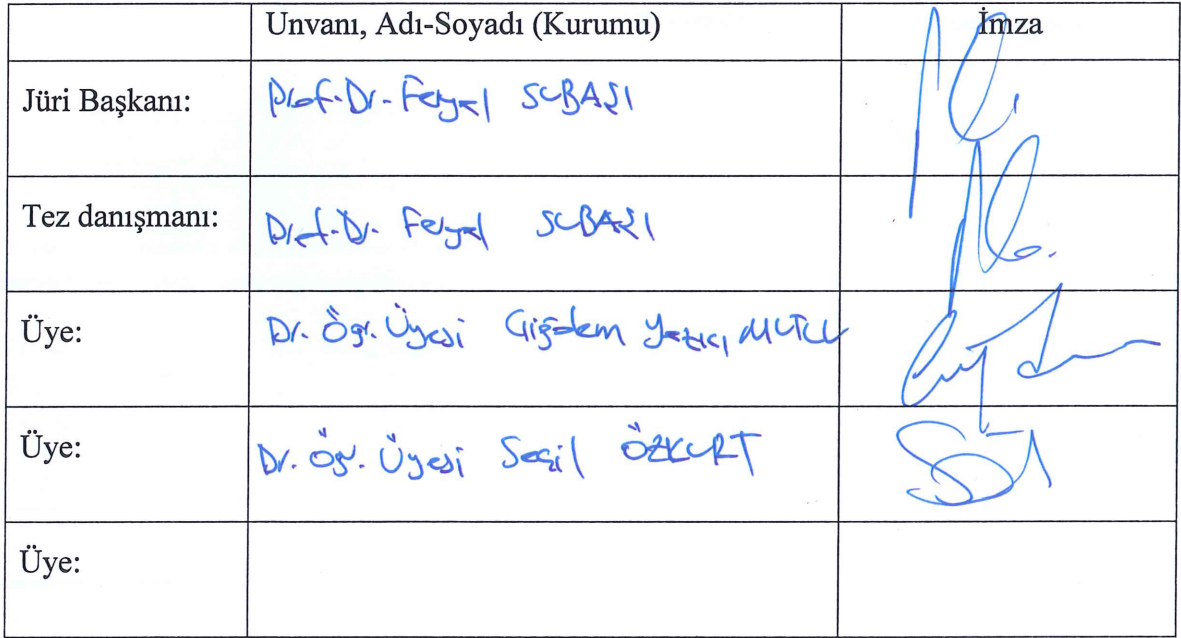 Unvanı, Adı-Soyadı (Kurumu) İmza
Jüri Başkanı: Prof. Dr. Feryal SUBAŞI
Tez danışmanı: Prof. Dr. Feryal SUBAŞI
Üye: Dr. Öğr. Üyesi Çiğdem Yazıcı MUTLU
Üye: Dr. Öğr. Üyesi Seçil ÖZKURT
Üye: